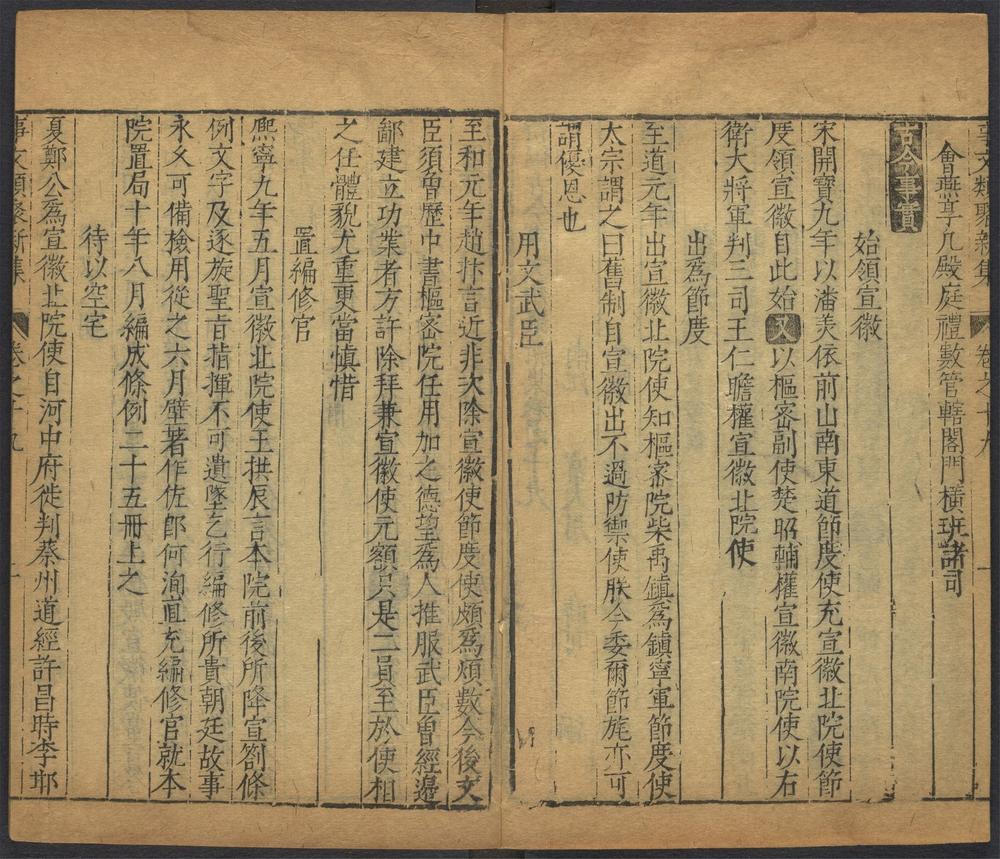 事文類聚新集 卷之十九 一
會燕亭凡殿庭禮數管轄閤門橫班諸司
古今事實
始領宣徽
宋開寶九年以潘美依前山南東道節度使充宣徽北院使節
度領宣徽自此始 又 以樞密副使楚昭輔權宣徽南院使以右
衛大將軍判三司王仁贍權宣徽北院使
出爲節度
至道元年出宣徽北院使知樞密院柴禹鎮爲鎮寧軍節度使
太宗謂之曰舊制自宣徽出不過防禦使朕今委爾節旄亦可
謂優恩也
用文武臣
至和元年趙抃言近非次除宣徽使節度使頗爲煩數今後文
臣須曾歷中書樞密院任用加之德望爲人推服武臣曾經邊
鄙建立功業者方許除拜兼宣徽使元額只是二員至於使相
之任體貌尤重更當慎惜
置編修官
熙寧九年五月宣徽北院使王拱辰言本院前後所降宣劄條
例文字及逐旋聖旨指揮不可遺墜乞行編修所貴朝廷故事
永久可備檢用從之六月壁著作佐郎何洵直充編修官就本
院置局十年八月編成條例二十五冊上之
待以空宅
夏鄭公爲宣徽北院使自河中府徙判蔡州道經許昌時李邯
事文類聚新集 卷之十九 一